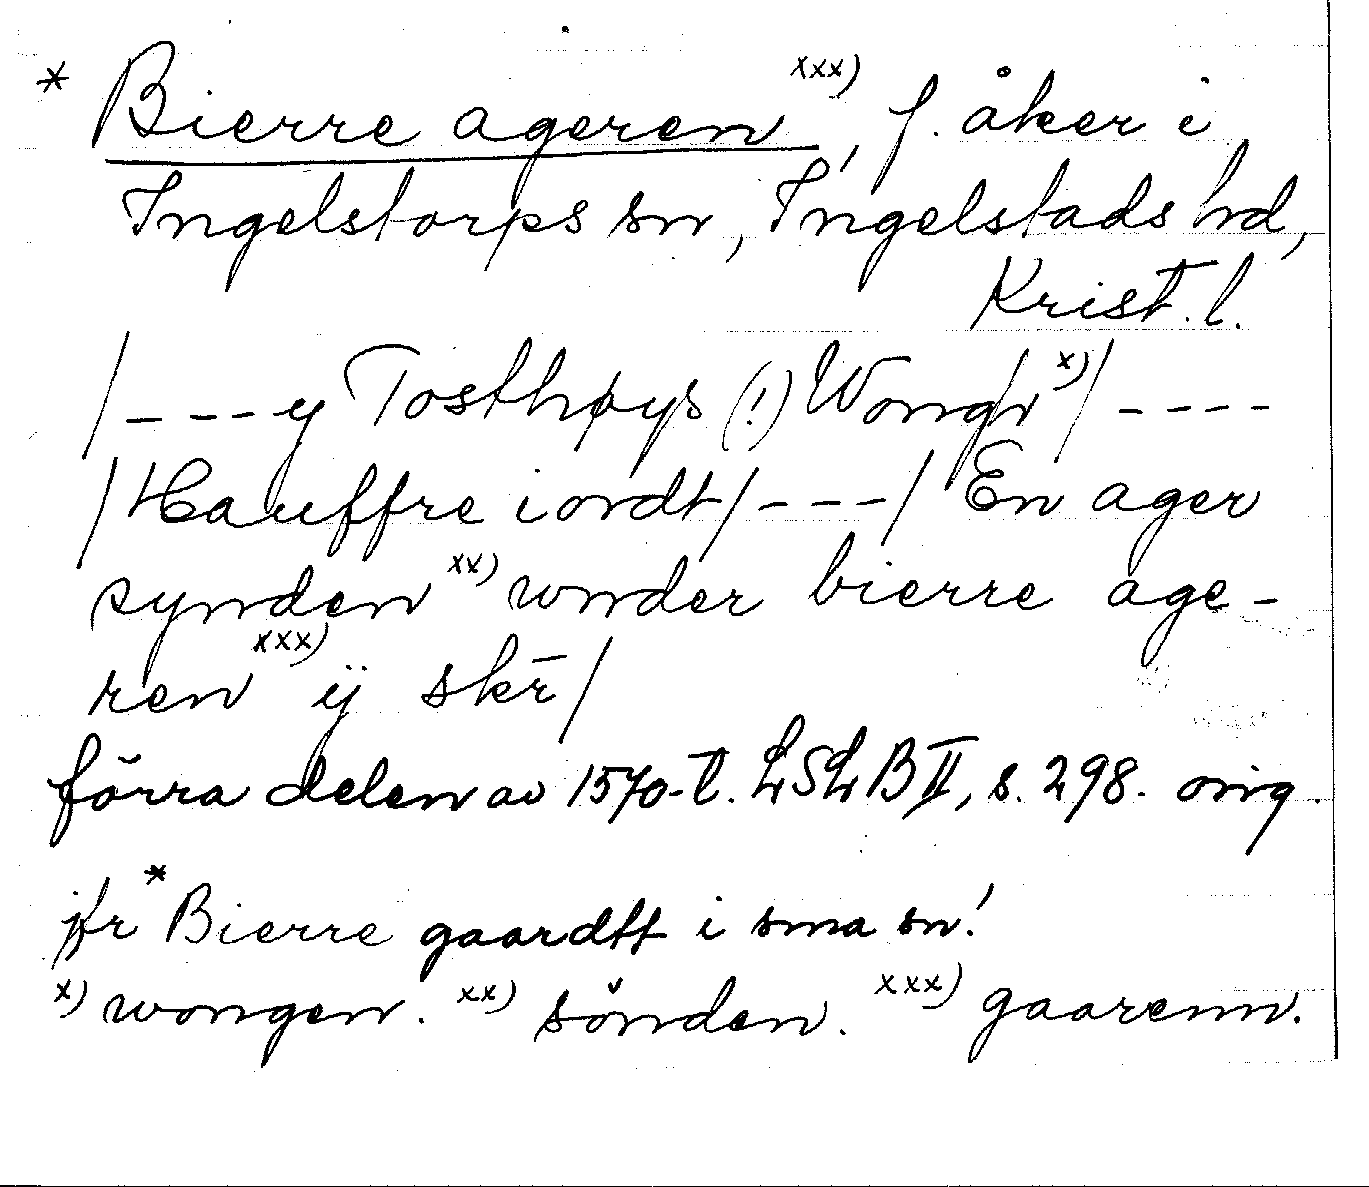 * Bierre ageren xxx), f. åker i
Ingelstorps sn, Ingelstads hd,
Krist. l.
/---y Tosthøys (!) Wongh x)/----
/Hauffre iordt/---/ En ager
synden xx) wnder bierre age-
ren xxx) ÿ skr̄/
förra delen av 1570-t. LSLB II, s. 298. orig.
jfr *Bierre gaardtt i sma sn!
x) wongen. xx) sönden. xxx) gaarenn.